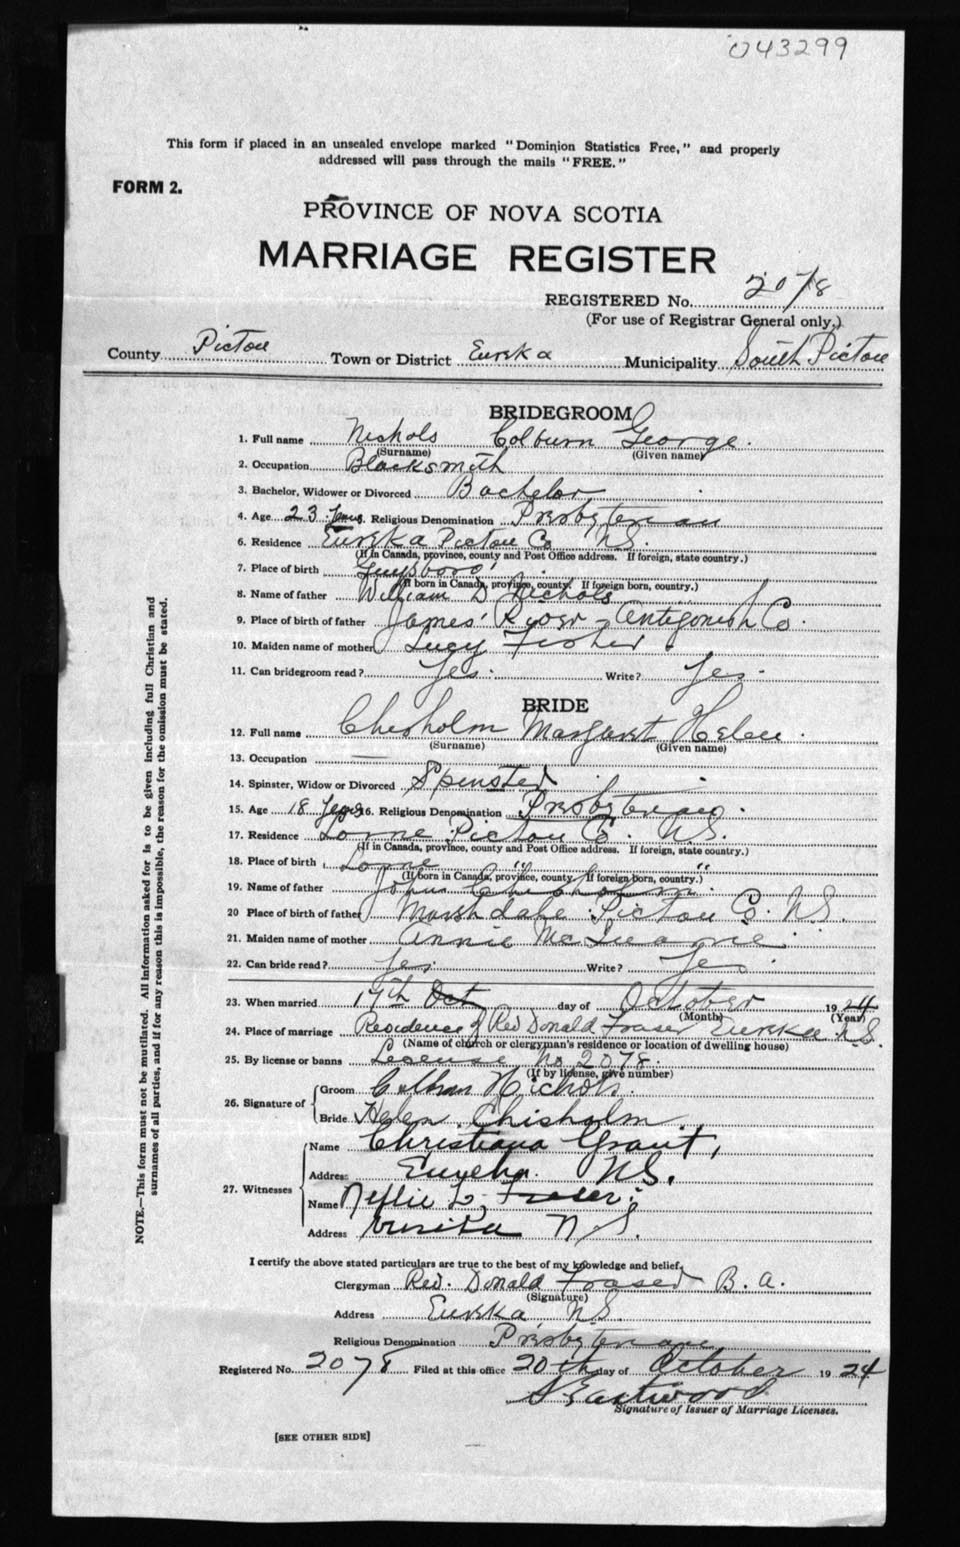 043299
This form if placed in an unsealed envelope marked "Dominion Statistics Free," and properly
addressed will pass through the mails "FREE."
FORM 2.
PROVINCE OF NOVA SCOTIA
MARRIAGE REGISTER
REGISTERED No. 2078
(For use of Registrar General only.)
County Pictou Town or District Eureka Municipality South Pictou
BRIDEGROOM
1. Full name Nichols Colburn George.
(Surname) (Given name)
2. Occupation Blacksmith
3. Bachelor, Widower or Divorced Bachelor
4. Age 23 Years 5. Religious Denomination Presbyterian
6. Residence Eureka Pictou Co NS.
(If in Canada, province, county and Post Office address. If foreign, state country.)
7. Place of birth Guysboro
(If born in Canada, province, county. If foreign born, country.)
8. Name of father William D Nichols
9. Place of birth of father James River - Antigonish Co.
10. Maiden name of mother Lucy Fisher
11. Can bridegroom read? Yes. Write? Yes.
BRIDE
12. Full name Chisholm Margaret Helen.
(Surname) (Given name)
13. Occupation —
14. Spinster, Widow or Divorced Spinster
15. Age 18 Years 16. Religious Denomination Presbyterian.
17. Residence Lorne Pictou Co. N.S.
(If in Canada, province, county and Post Office address. If foreign, state country.)
18. Place of birth Lorne " "
(If born in Canada, province, county. If foreign born, country.)
19. Name of father John Chisholm.
20 Place of birth of father Marshdale Pictou Co. N.S.
21. Maiden name of mother Annie
22. Can bride read? Yes Write? Yes
23. When married Oct day of October 1924
(Month) (Year)
24. Place of marriage Residence of Rev Donald Fraser Eureka N.S.
(Name of church or clergyman's residence or location of dwelling house)
25. By license or banns License No 2078.
(If by license, give number)
26. Signature of
Groom Nichols.
Bride Helen Chisholm
27. Witnesses
Name Christiana Grant,
Address Eureka. NS.
Name Nellie L. Fraser.
Address Eureka N.S.
I certify the above stated particulars are true to the best of my knowledge and belief.
Clergyman Rev. Donald Fraser B.A.
(Signature)
Address Eureka, N.S.
Religious Denomination Presbyterian
Registered No. 2078 Filed at this office 20th day of October 1924
S Eastwood
Signature of Issuer of Marriage Licenses.
[SEE OTHER SIDE]
NOTE.—This form must not be mutilated. All information asked for is to be given including full Christian and
surnames of all parties, and if for any reason this is impossible, the reason for the omission must be stated.